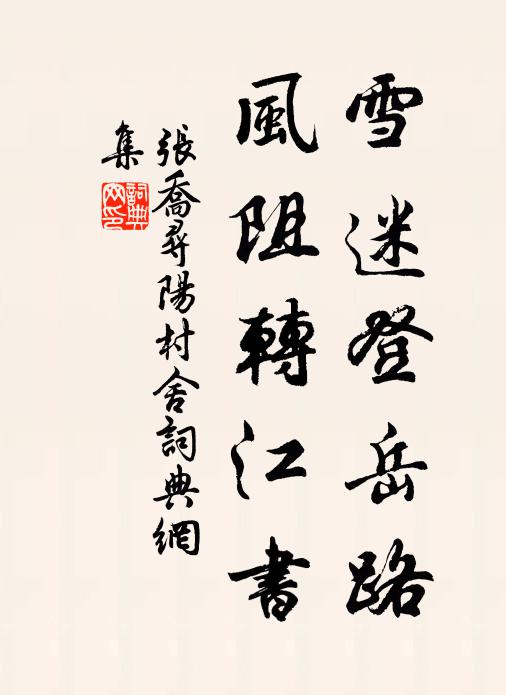 雪迷登岳路
風阻轉江書
張喬尋陽村舍詞典網
集
詞典
网印